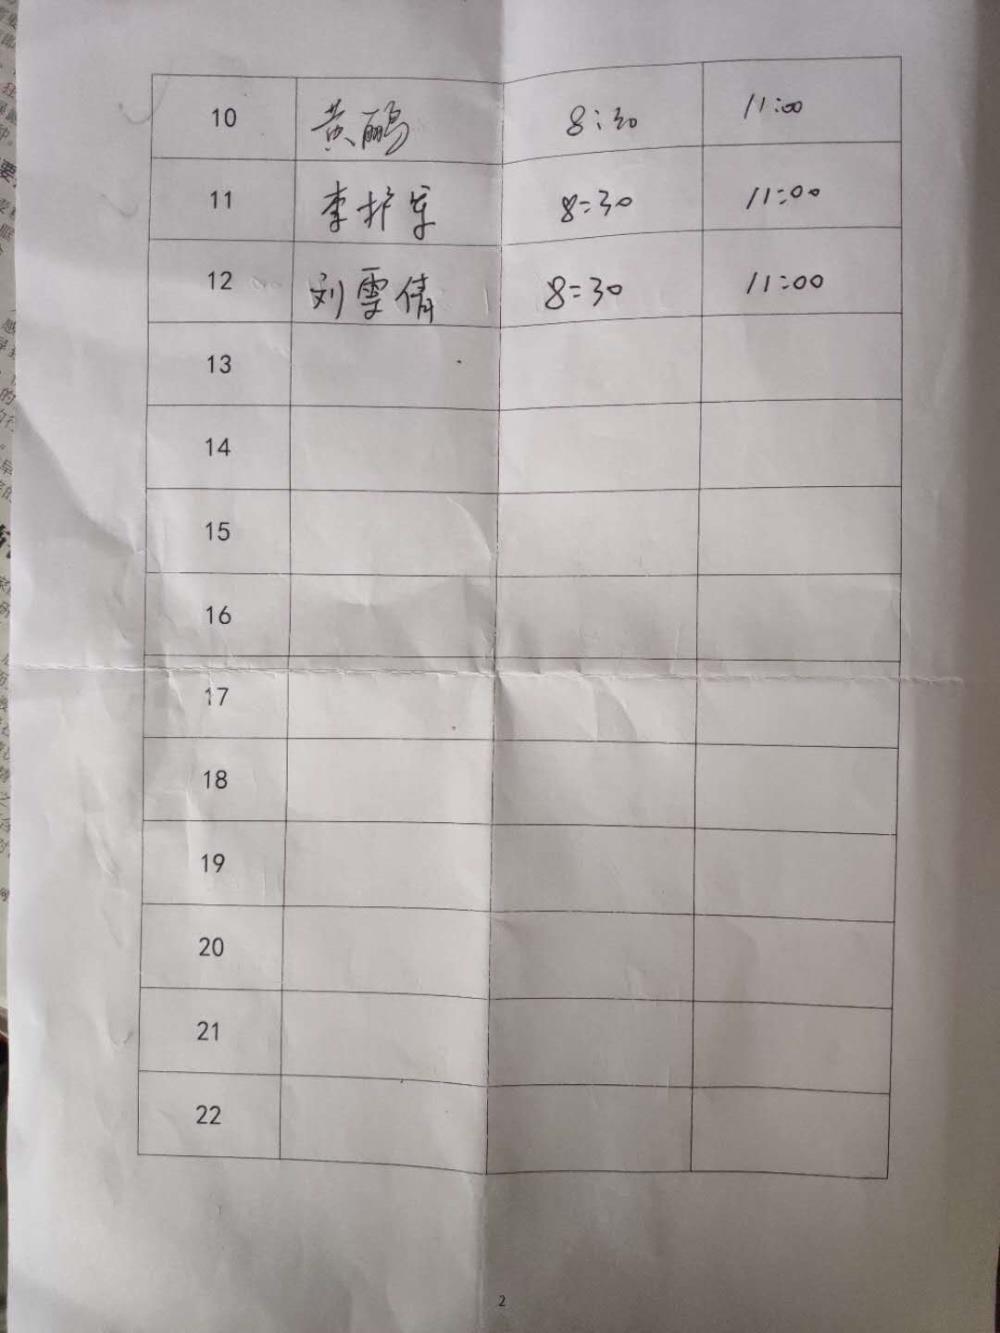 10 黄鹂 8:30 11:00
11 李护军 8:30 11:00
12 刘雪倩 8:30 11:00
13
14
15
16
17
18
19
20
21
22
2